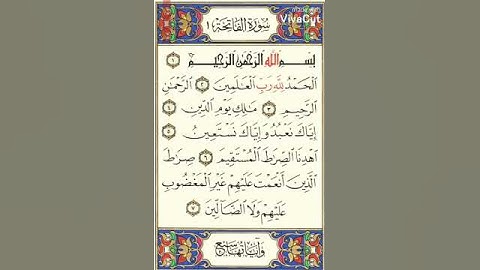 سُورَةُ الفَاتِحَةِ ١
made with
VivaCut
بِسْمِ اللَّهِ الرَّحْمَٰنِ الرَّحِيمِ ۝١
الْحَمْدُ لِلَّهِ رَبِّ الْعَالَمِينَ ۝٢ الرَّحْمَٰنِ
الرَّحِيمِ ۝٣ مَالِكِ يَوْمِ الدِّينِ ۝٤
إِيَّاكَ نَعْبُدُ وَإِيَّاكَ نَسْتَعِينُ ۝٥
اهْدِنَا الصِّرَاطَ الْمُسْتَقِيمَ ۝٦ صِرَاطَ
الَّذِينَ أَنْعَمْتَ عَلَيْهِمْ غَيْرِ الْمَغْضُوبِ
عَلَيْهِمْ وَلَا الضَّالِّينَ ۝٧
وَآيَاتُهَا سَبْعٌ